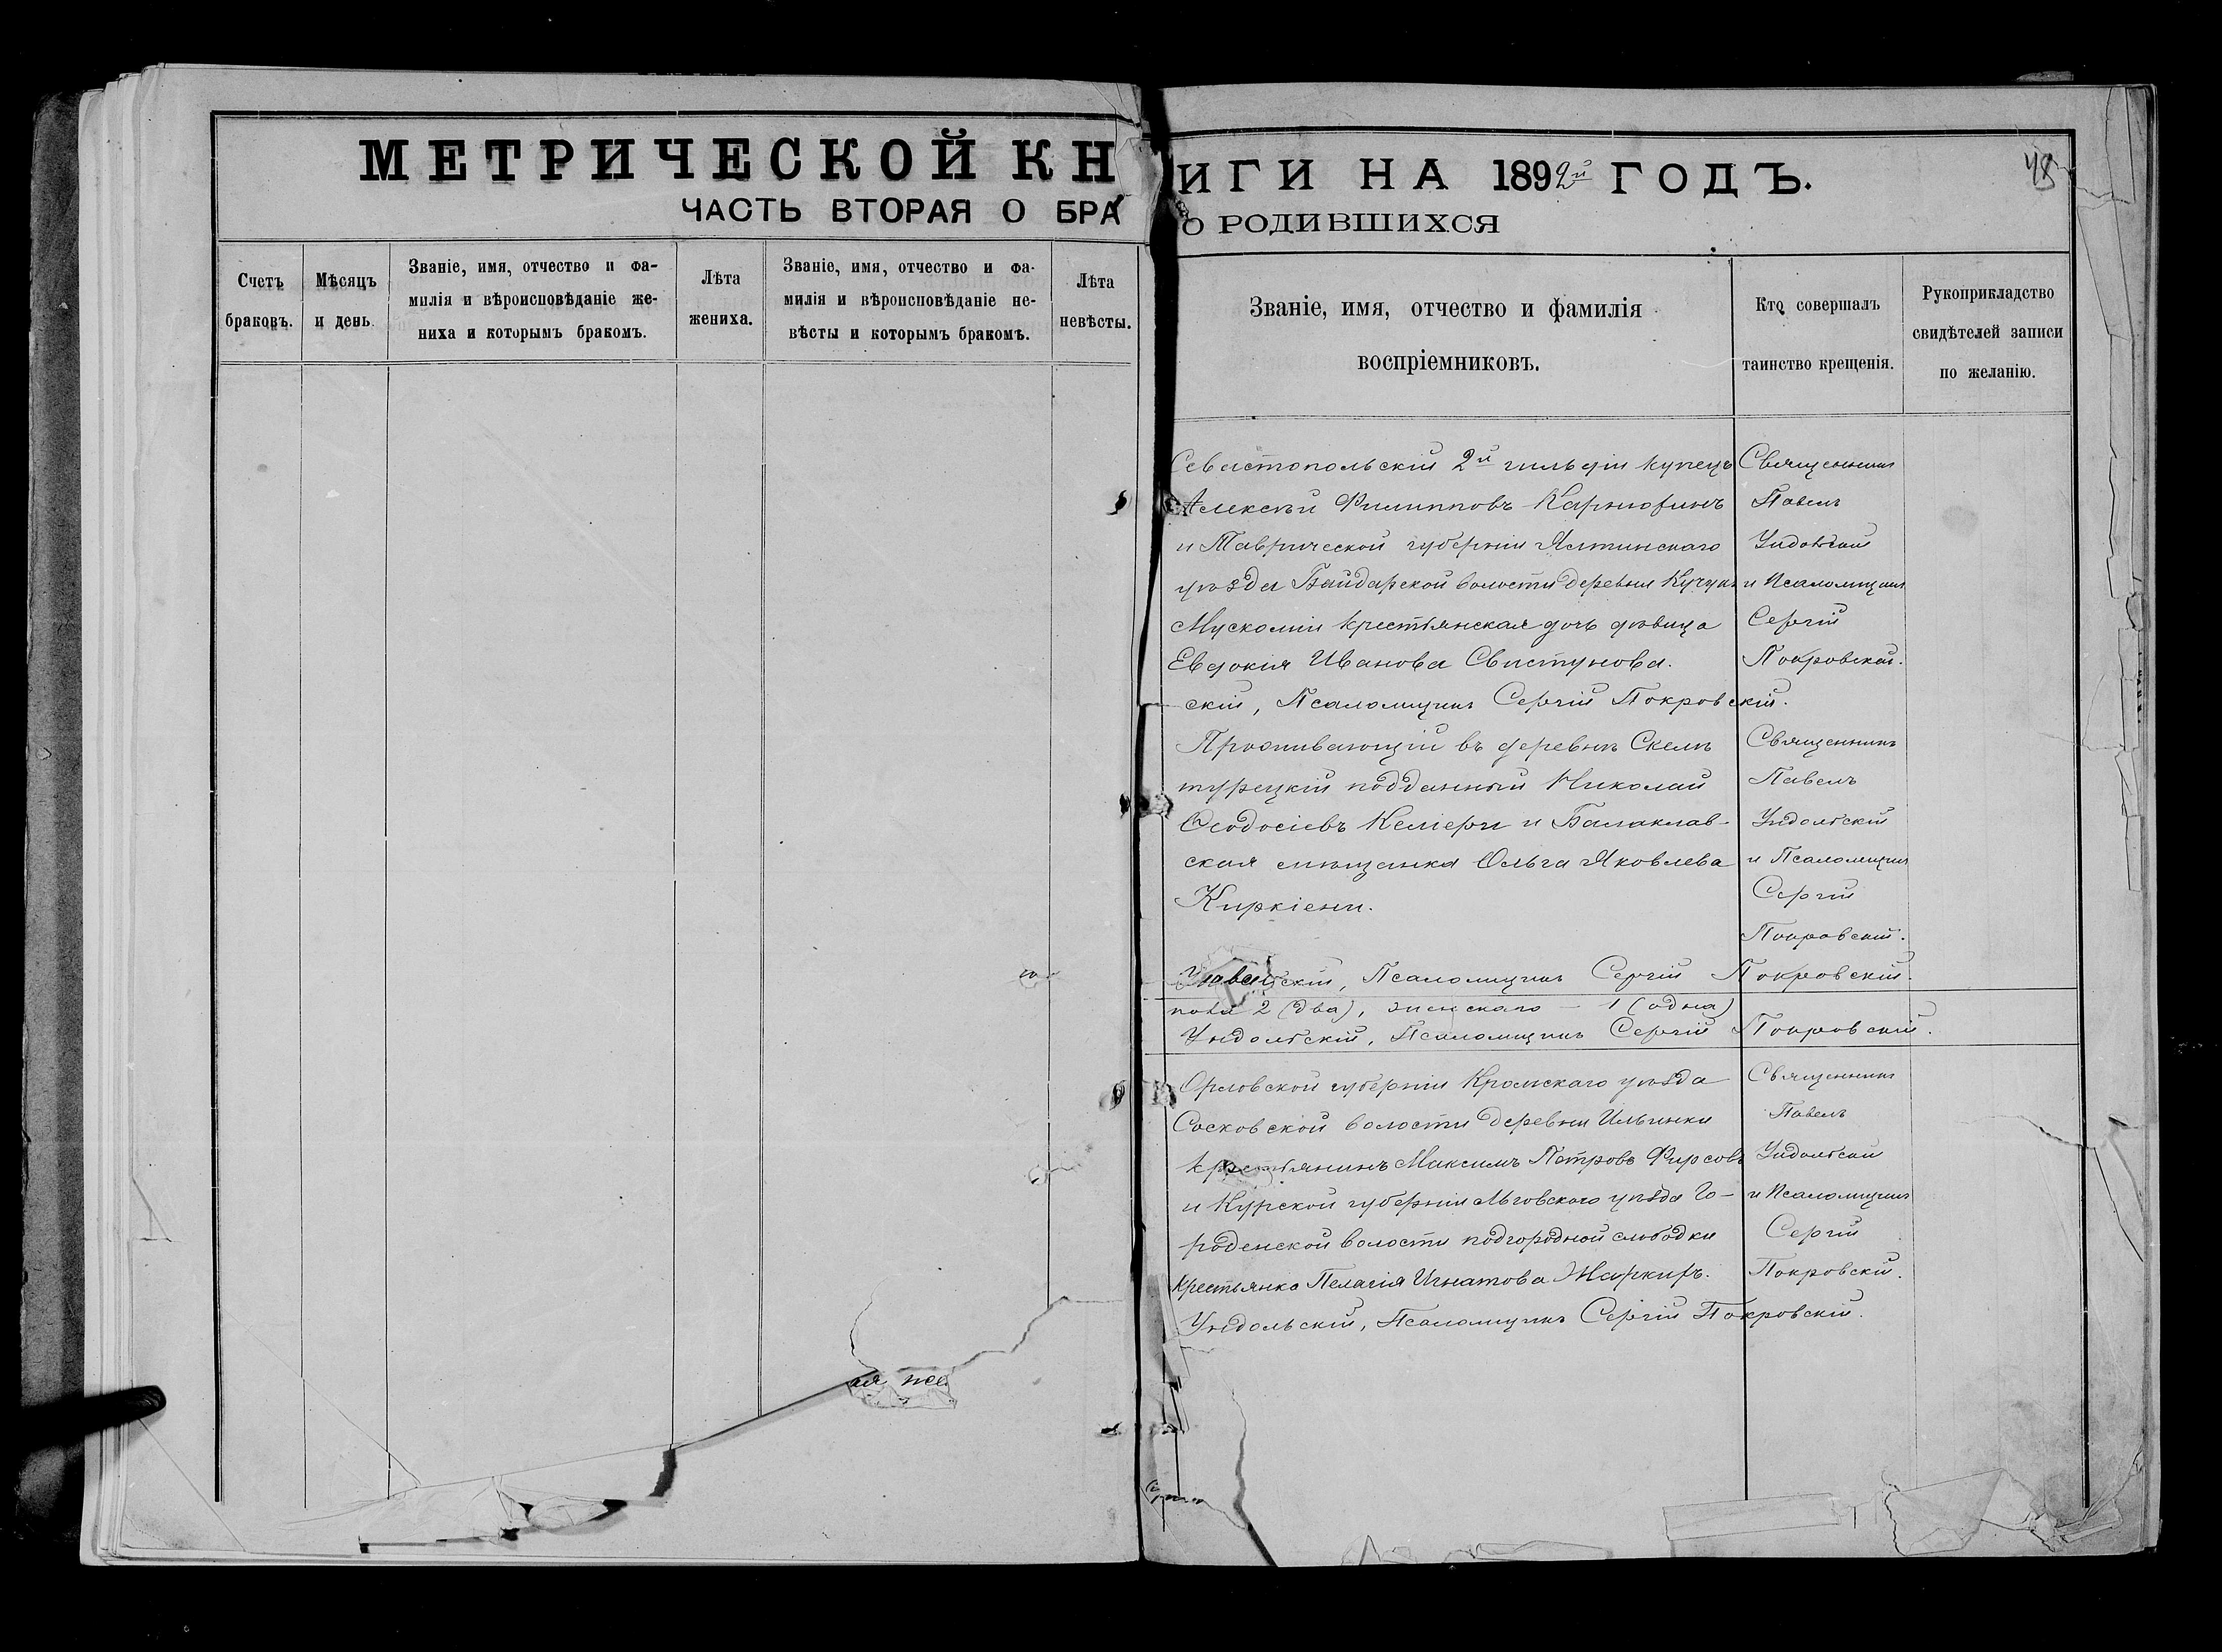 МЕТРИЧЕСКОЙ КН
ЧАСТЬ ВТОРАЯ О БРА
Счетъ браковъ.
Мѣсяцъ и день
Званіе, имя, отчество и фа-
милія и вѣроисповѣданіе же-
ниха и которымъ бракомъ.
Лѣта жениха.
Званіе, имя, отчество и фа-
милія и вѣроисповѣданіе не-
вѣсты и которымъ бракомъ.
Лѣта невѣсты.
ая же
ИГИ НА 1892й ГОДЪ.
48
О РОДИВШИХСЯ
Званіе, имя, отчество и фамилія
воспріемниковъ.
Кто совершалъ
таинство крещенія.
Рукоприкладство
свидѣтелей записи
по желанію.
Севастопольскій 2й гильдіи купецъ
Алексѣй Филипповъ
и Таврической губерніи Ялтинскаго
уѣзда Байдарской волости деревни Кучукъ
Мускоміи крестьянская дочь дѣвица
Евдокія Иванова Свистунова.
Священникъ
Павелъ
Ундольскій
и Псаломщикъ
Сергій
Покровскій.
скій, Псаломщикъ Сергій Покровскій.
Проживающій въ деревнѣ Скели
турецкій подданный Николай
Ѳеодосіевъ Келіери и Балаклав-
ская мѣщанка Ольга Яковлева
Киркіени.
Священникъ
Павелъ
Ундольскій
и Псаломщикъ
Сергій
Покровскій.
скій, Псаломщикъ Сергій Покровскій.
пола 2 (два), женскаго — 1 (одна)
Ундольскій, Псаломщикъ Сергій Покровскій.
Орловской губерніи Кромскаго уѣзда
Сосковской волости деревни Ильинки
крестьянинъ Максимъ Петровъ Фирсовъ
и Курской губерніи Льговскаго уѣзда Го-
роденской волости подгородной слободки
крестьянка Пелагія Игнатова Жаркихъ.
Священникъ
Павелъ
Ундольскій
и Псаломщикъ
Сергій
Покровскій.
Ундольскій, Псаломщикъ Сергій Покровскій.